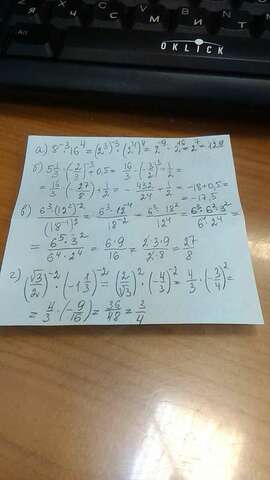 OKLICK
а) 8⁻³·16⁴=(2³)⁻³·(2⁴)⁴=2⁻⁹·2¹⁶=2⁷=128
б) 5 1/3·(-2/3)⁻³+0,5= 16/3·(-3/2)³+1/2=
= 16/3·(-27/8)+1/2=-432/24+1/2=-18+0,5=
=-17,5
в) 6³·(12²)⁻²/(18⁻¹)²=6³·12⁻⁴/18⁻²=6³·18²/12⁴=6³·6²·3²/6⁴·2⁴=
=6⁵·3²/6⁴·2⁴=6·9/16=2·3·9/2·8=27/8
г) (√3/2)⁻²·(-1 1/3)⁻²=(2/√3)²·(-4/3)⁻²=4/3·(-3/4)²=
=4/3·(-9/16)=36/48=3/4